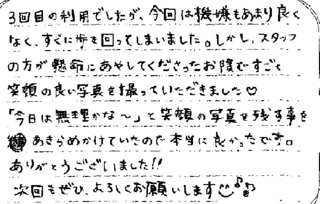 3回目の利用でしたが、今回は機嫌もあまり良く
なく、すぐに歩き回ってしまいました。しかし、スタッフ
の方が懸命にあやしてくださったお陰ですごく
笑顔の良い写真を撮っていただきました♡
「今日は無理かな〜」と笑顔の写真を残す事を
あきらめかけていたので本当に良かったです。
ありがとうございました!!
次回もぜひ、よろしくお願いします